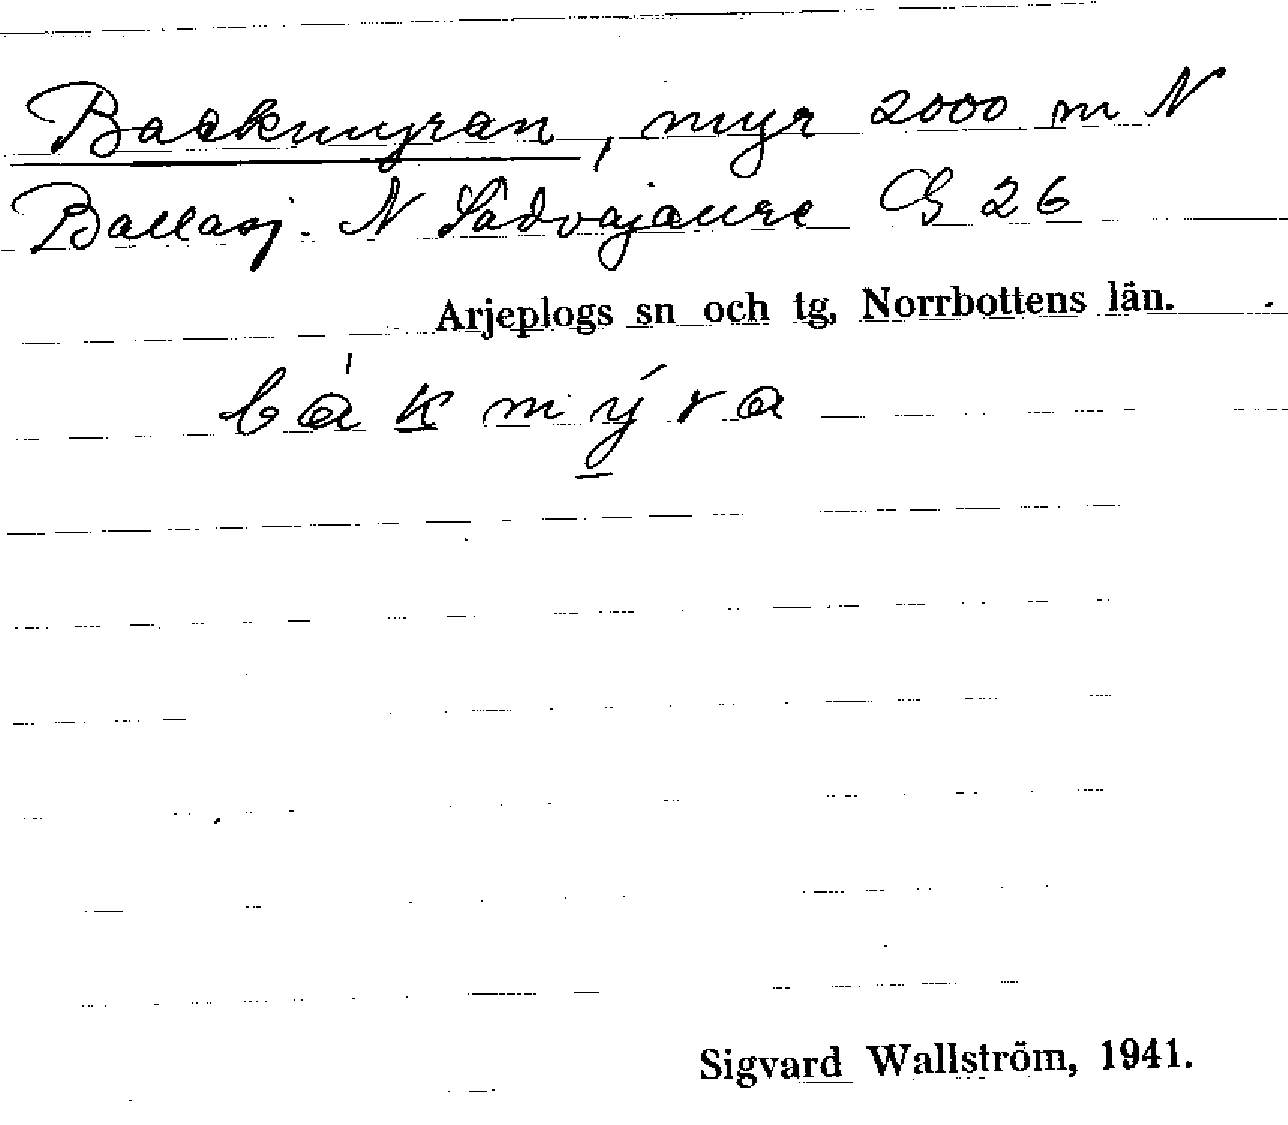 Backmyran, myr 2000 m N
Ballasj. N Sädvajaure G 26
Arjeplogs sn och tg, Norrbottens län.
bákmýra
Sigvard Wallström, 1941.